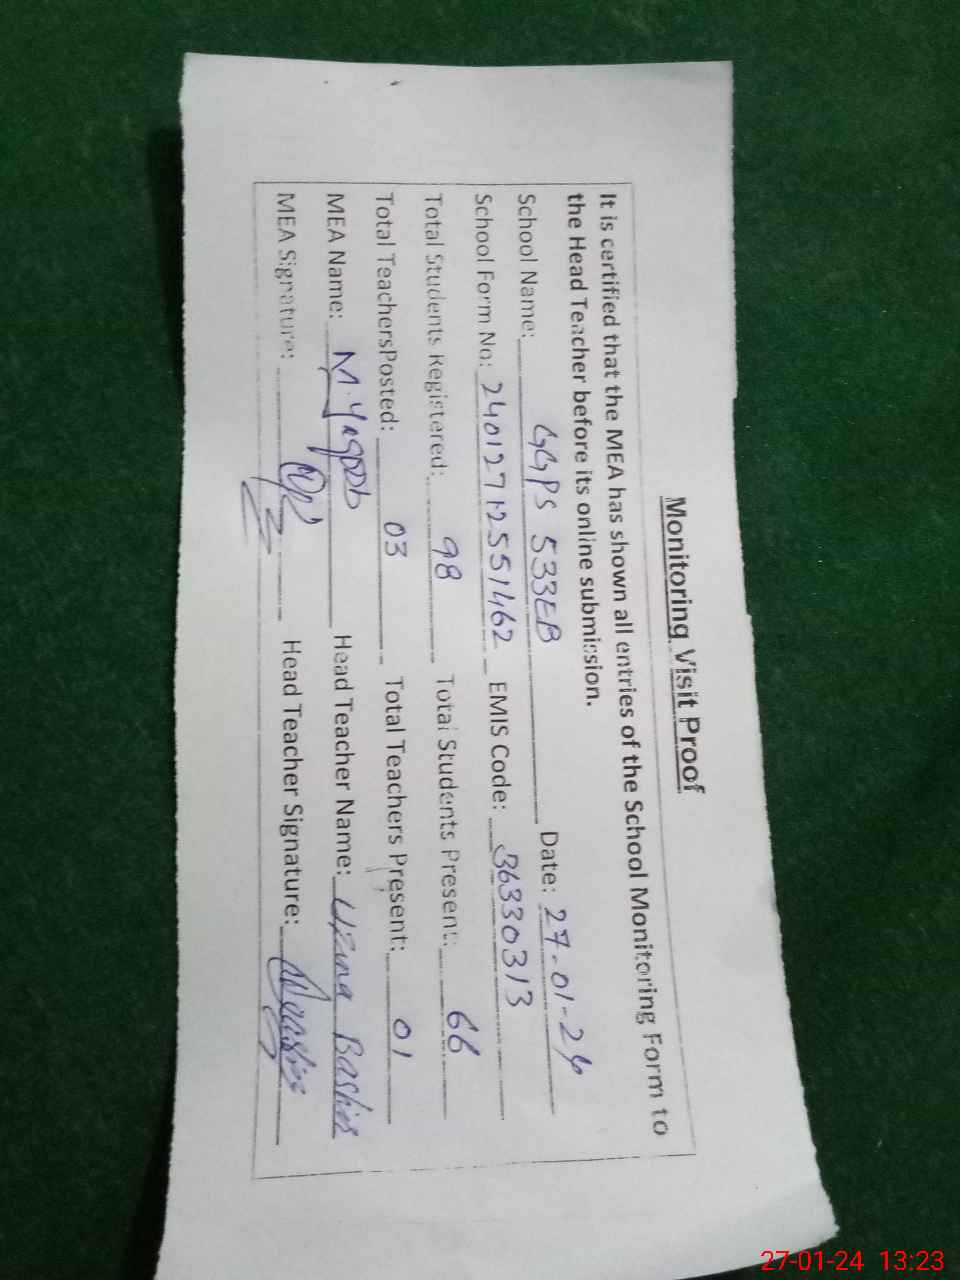 Monitoring Visit Proof
It is certified that the MEA has shown all entries of the School Monitoring Form to
the Head Teacher before its online submission.
School Name: GGPS 533EB Date: 27-01-24
School Form No: 24012712551462 EMIS Code: 36330313
Total Students Registered: 98 Total Students Present: 66
Total TeachersPosted: 03 Total Teachers Present: 01
MEA Name: M.Yaqoob Head Teacher Name: Uzma Bashir
MEA Signature: Head Teacher Signature:
27-01-24 13:23